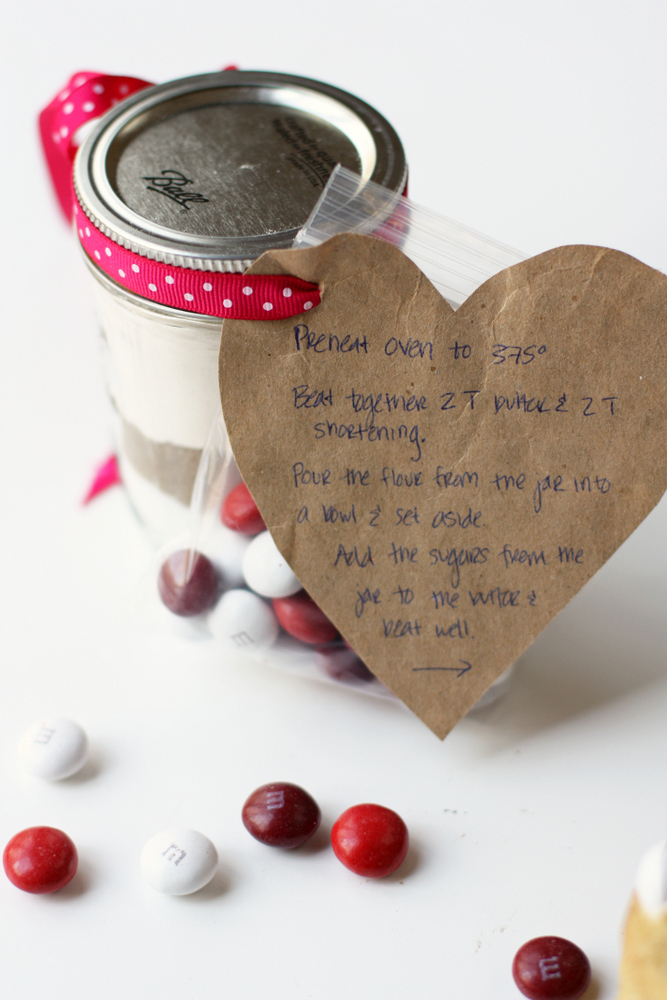 Ball
Preheat oven to 375°
Beat together 2 T butter & 2 T
shortening.
Pour the flour from the jar into
a bowl & set aside.
Add the sugars from the
jar to the butter &
beat well.
→
m
m
m
m
m